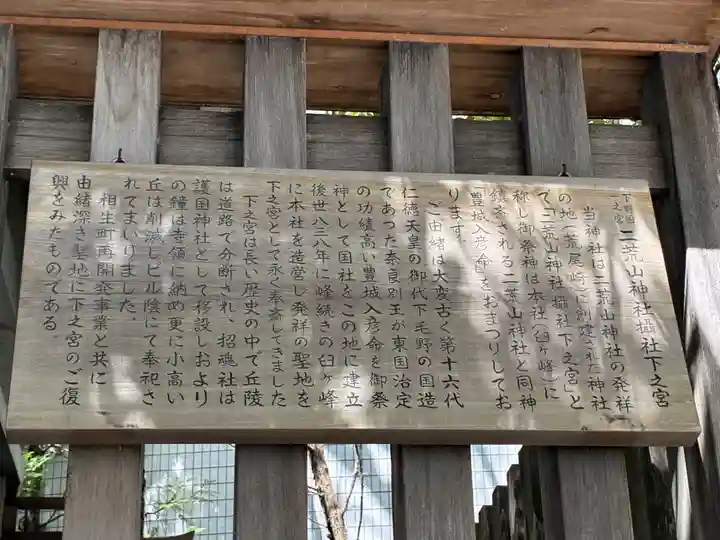 下野国一之宮 二荒山神社攝社下之宮
当神社は二荒山神社の発祥
の地(荒尾崎)に創建された神社
で「二荒山神社攝社下之宮」と
称し御祭神は本社(臼ヶ峰)に
鎮斎される二荒山神社と同神
豊城入彦命をおまつりしてお
ります。
ご由緒は大変古く第十六代
仁徳天皇の御代下毛野の国造
であった奈良別王が東国治定
の功績高い豊城入彦命を御祭
神として国社をこの地に建立
後世八三八年に峰続きの臼ヶ峰
に本社を造営し発祥の聖地を
下之宮として永く奉斎してきました
下之宮は長い歴史の中で丘陵
は道路で分断され、招魂社は
護国神社として移設しおより
の鐘は寺領に納め更に小高い
丘は削減しビル陰にて奉祀さ
れてまいりました。
相生町再開発事業と共に
由緒深き聖地に下之宮のご復
興をみたものである。